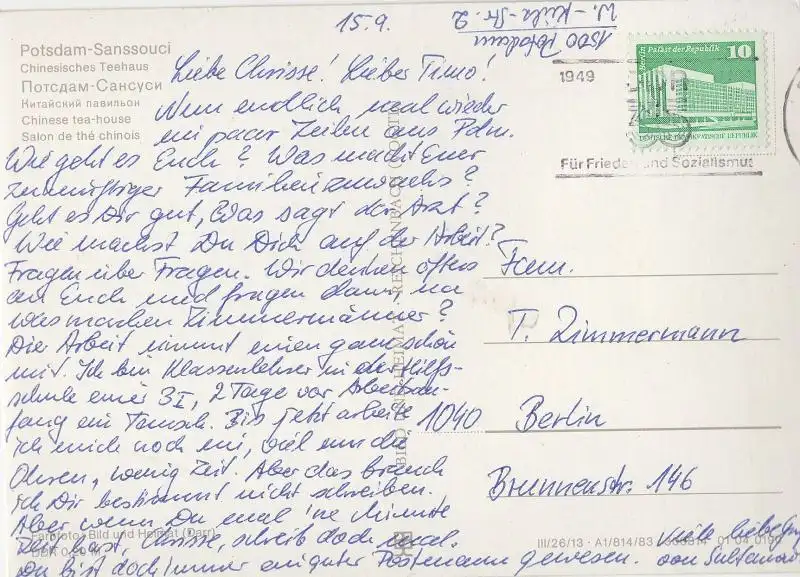 15.9.
W.-Külz-Str. 2
1500 Potsdam
Potsdam-Sanssouci
Chinesisches Teehaus
Потсдам-Сансуси
Китайский павильон
Chinese tea-house
Salon de thé chinois
Berlin Palast der Republik 10
DEUTSCHE DEMOKRATISCHE REPUBLIK
1949
Für Frieden und Sozialismus
Liebe Chrisse! Lieber Timo!
Nun endlich mal wieder
ein paar Zeilen aus Pdm.
Wie geht es Euch? Was macht Euer
zukünftiger Familienzuwachs?
Geht es Dir gut, Was sagt der Arzt?
Wie machst Du Dich auf der Arbeit?
Fragen über Fragen. Wir denken öfters
an Euch und fragen dann, na
was machen Zimmermänner?
Die Arbeit nimmt einen ganz schön
mit. Ich bin Klassenlehrer in der Hilfs-
schule einer 3I, 2 Tage vor Arbeitsan-
fang ein Tausch. Bis jetzt arbeite
ich mich noch ein, viel um die
Ohren, wenig Zeit. Aber das brauch
ich Dir bestimmt nicht schreiben.
Aber wenn Du mal 'ne Minute
Zeit hast, Chrisse, schreib doch mal.
Du bist doch immer ein guter Postmann gewesen.
Viele liebe
von
Fam.
T. Zimmermann
1040 Berlin
Brunnenstr. 146
BILD UND HEIMAT REICHENBACH
Farbfoto: Bild und Heimat (Darr)
III/26/13 · A1/814/83
01 04 0190